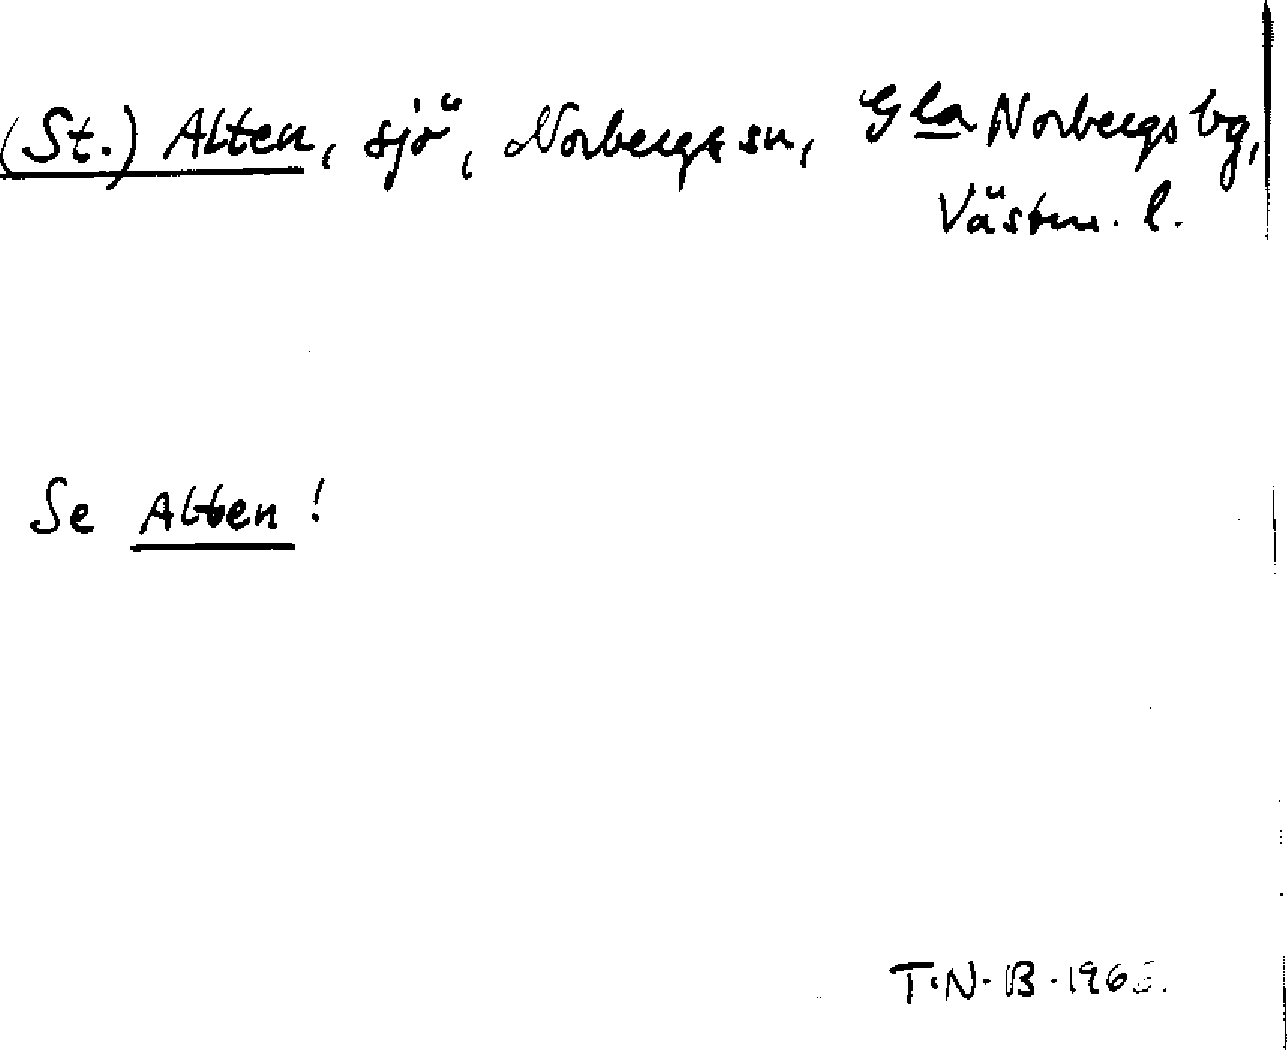 (St.) Alten, sjö, Norbergs sn, Gla Norbergs bg,
Västm. l.
Se Alten!
T.N.B.